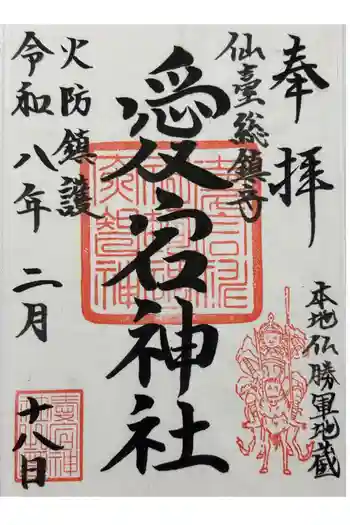 奉拝
仙臺総鎮守
愛宕神社
本地仏勝軍地蔵
火防鎮護
令和八年二月
十八日